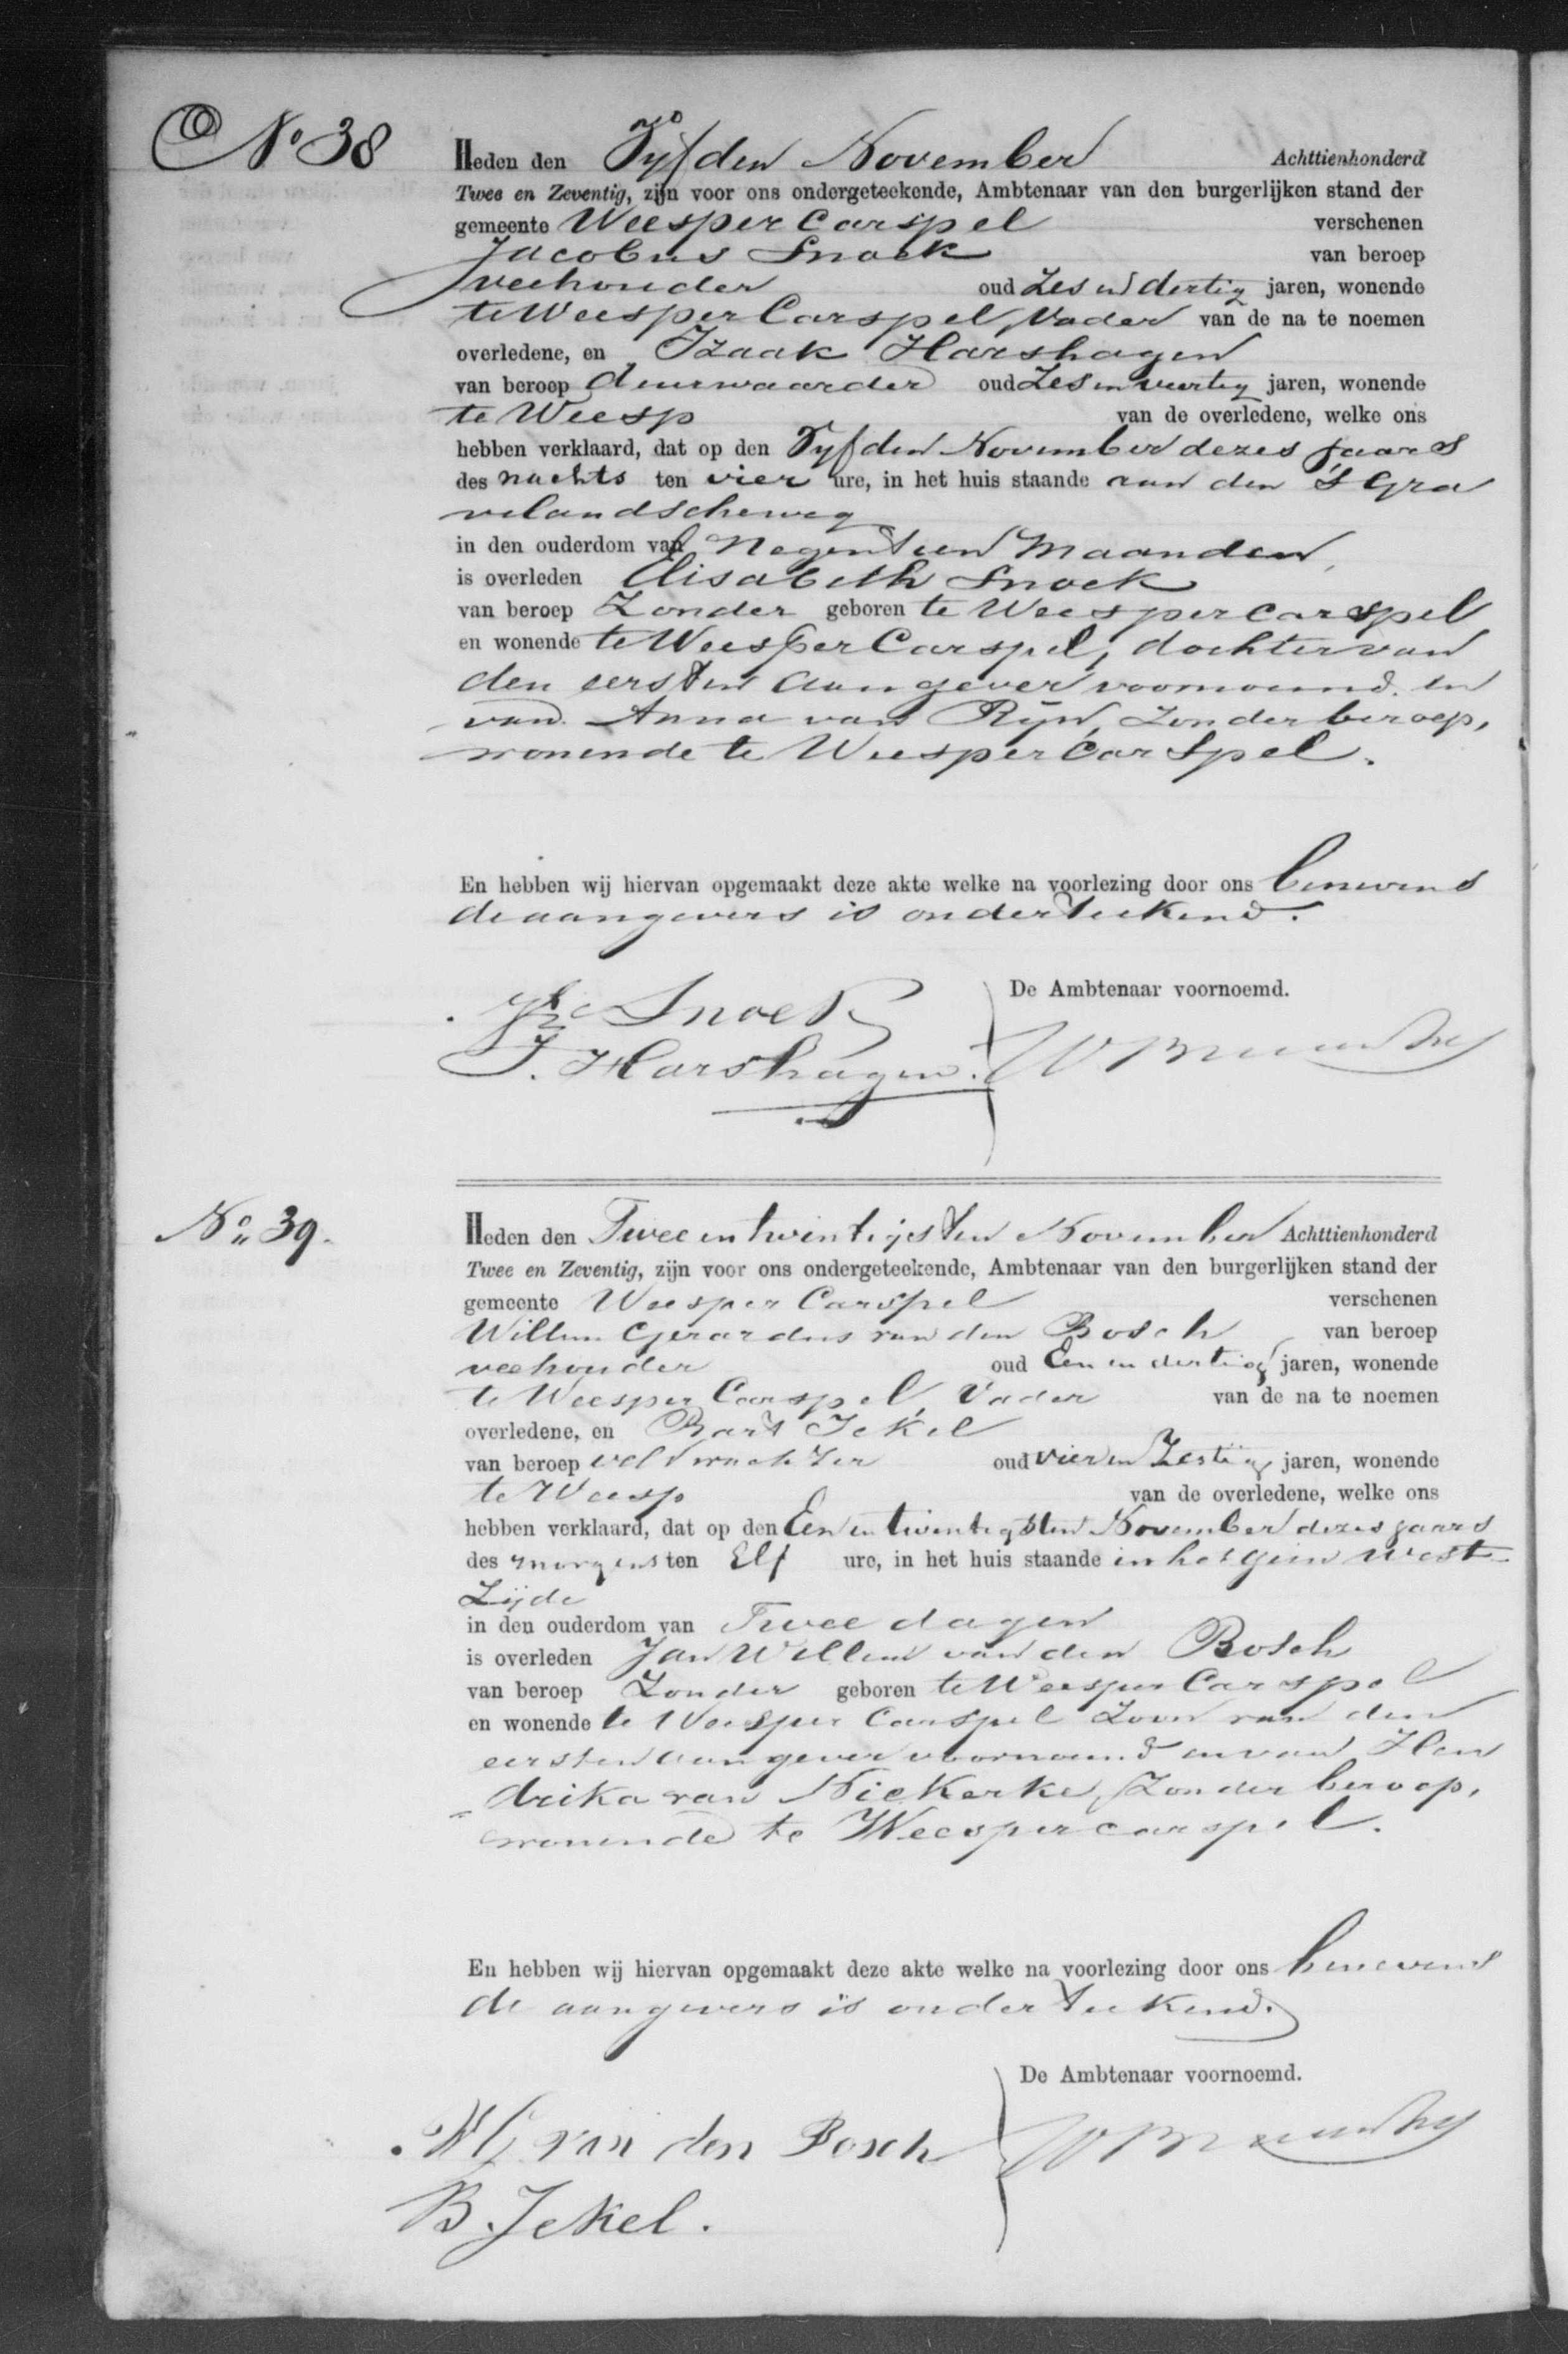 No 38
Heden den Vyfden November Achttienhonderd
Twee en Zeventig, zijn voor ons ondergeteekende, Ambtenaar van den burgerlijken stand der
gemeente Weesper Carspel verschenen
Jacobus Snoek van beroep
veehouder oud Zes en dertig jaren, wonende
te Weesper Carspel, Vader van de na te noemen
overledene, en Izaak Harshagen
van beroep deurwaarder oud Zes en veertig jaren, wonende
te Weesp van de overledene, welke ons
hebben verklaard, dat op den Vyfden November dezes jaars
des nachts ten vier ure, in het huis staande aan den 's Gra
velandscheweg
in den ouderdom van Negentien Maanden,
is overleden Elisabeth Snoek
van beroep Zonder geboren te Weespercarspel
en wonende te Weesper Carspel, dochter van
den eersten aangever voornoemd en
van Anna van Ryn, Zonder beroep,
wonende te Weesper Carspel.
En hebben wij hiervan opgemaakt deze akte welke na voorlezing door ons benevens
de aangevers is onderteekend.
De Ambtenaar voornoemd.
Jbs Snoek
I. Harshagen.
No 39.
Heden den Twee en twintigsten November Achttienhonderd
Twee en Zeventig, zijn voor ons ondergeteekende, Ambtenaar van den burgerlijken stand der
gemeente Weesper Carspel verschenen
Willem Gerardus van den Bosch van beroep
veehouder oud Een en dertig jaren, wonende
te Weesper Carspel, Vader van de na te noemen
overledene, en Bart Jekel
van beroep veldwachter oud vier en Zestig jaren, wonende
te Weesp van de overledene, welke ons
hebben verklaard, dat op den Een en twintigsten November dezes jaars
des morgens ten Elf ure, in het huis staande in het Gein West
Zijde
in den ouderdom van Twee dagen
is overleden Jan Willem van den Bosch
van beroep Zonder geboren te Weesper Carspel
en wonende te Weesper Carspel Zoon van den
eersten aangever voornoemd en van Hen
drika van Niekerke, Zonder beroep,
wonende te Weespercarspel.
En hebben wij hiervan opgemaakt deze akte welke na voorlezing door ons benevens
de aangevers is onderteekend.
De Ambtenaar voornoemd.
W G van den Bosch
B. Jekel.